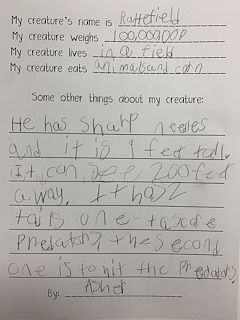 My creature's name is Rattefield
My creature weighs 100,000,00P
My creature lives in a field
My creature eats animals and corn
Some other things about my creature:
He has sharp needes
and it is 9 feet tall.
it can see 200 feet
away. It has 2
tails one tascare
Predators, the second
one is to hit the Predators.
By: Asher